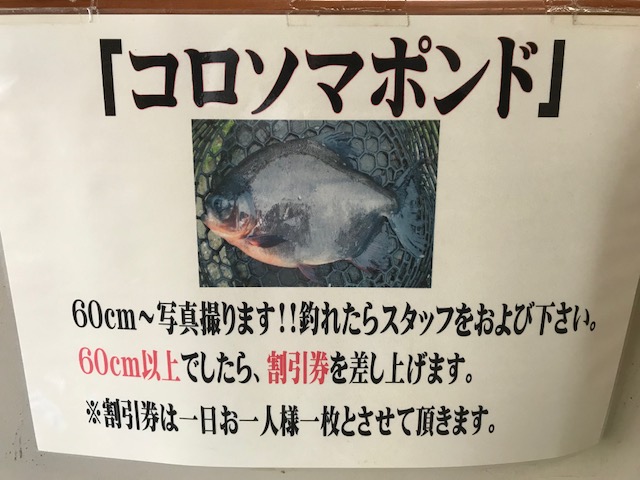 「コロソマポンド」
60cm～写真撮ります!!釣れたらスタッフをおよび下さい。
60cm以上でしたら、割引券を差し上げます。
※割引券は一日お一人様一枚とさせて頂きます。